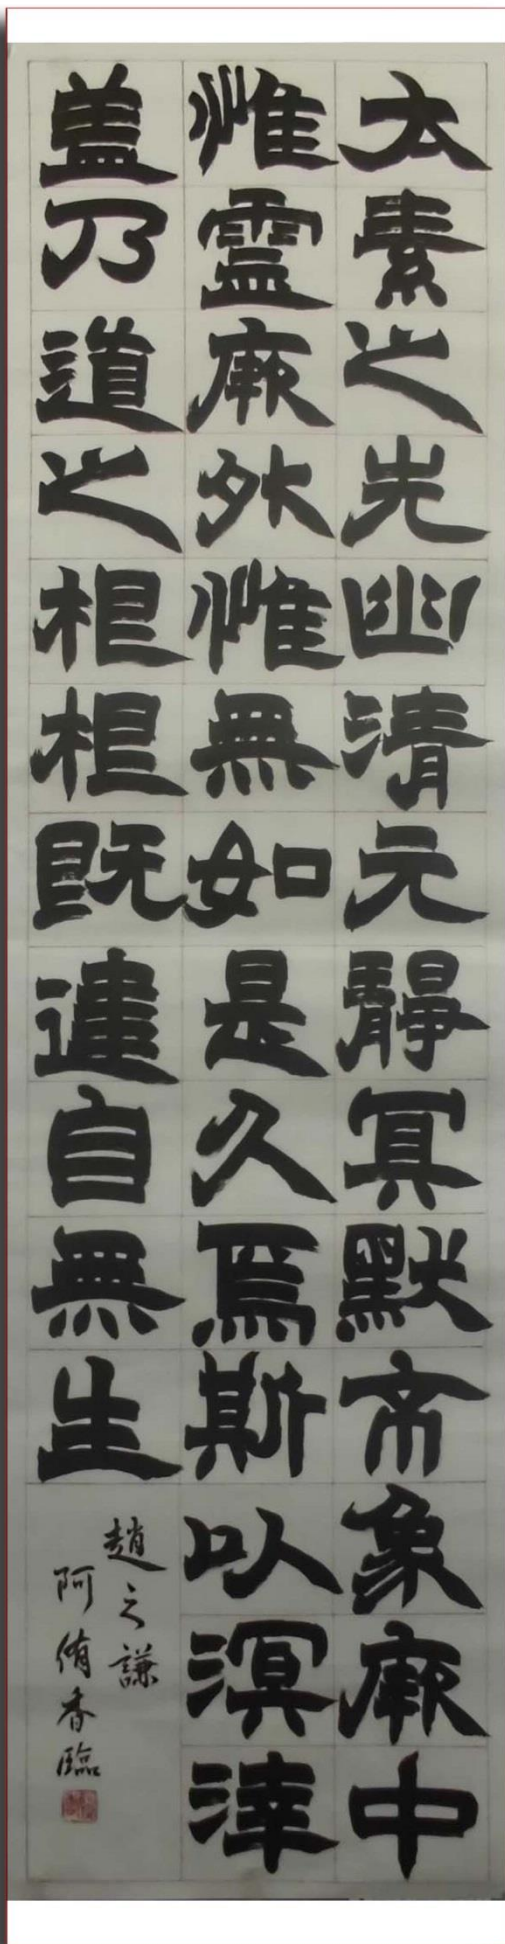 太素之先幽清元靜冥默象厥中
惟靈厥外惟無如是久焉斯以溟涬
盖乃道之根根既建自無生
趙之謙
阿侑香臨